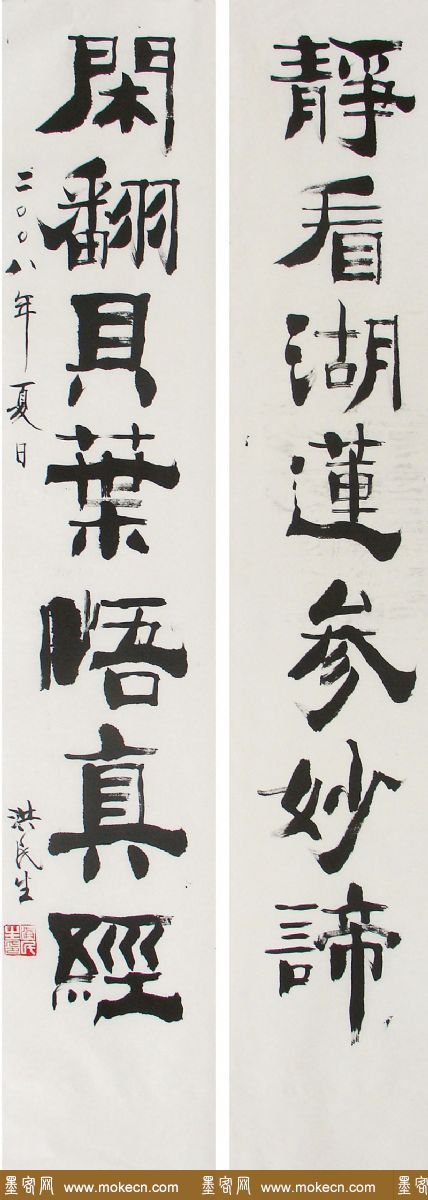 靜看湖蓮参妙諦
閑翻貝葉悟真經
二〇〇八年夏日
洪民生
墨客网 www.mokecn.com 墨客网 www.mokecn.com